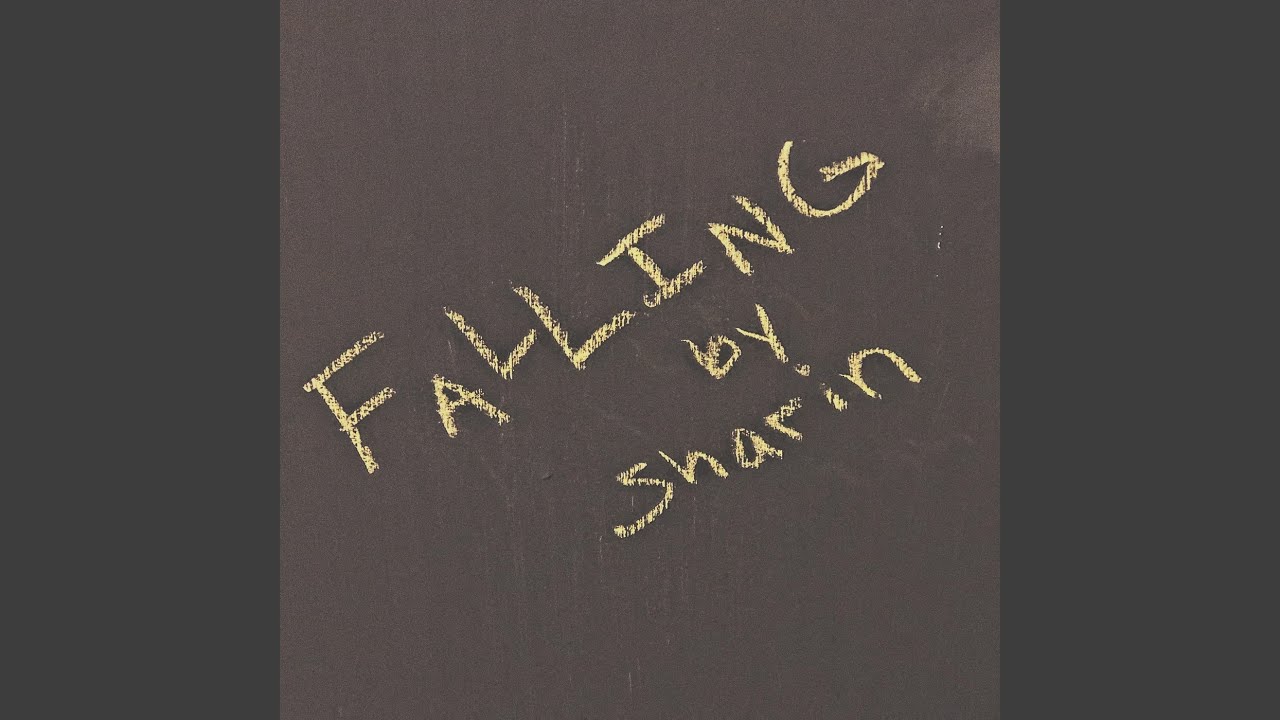 FALLING
by.
Sharin